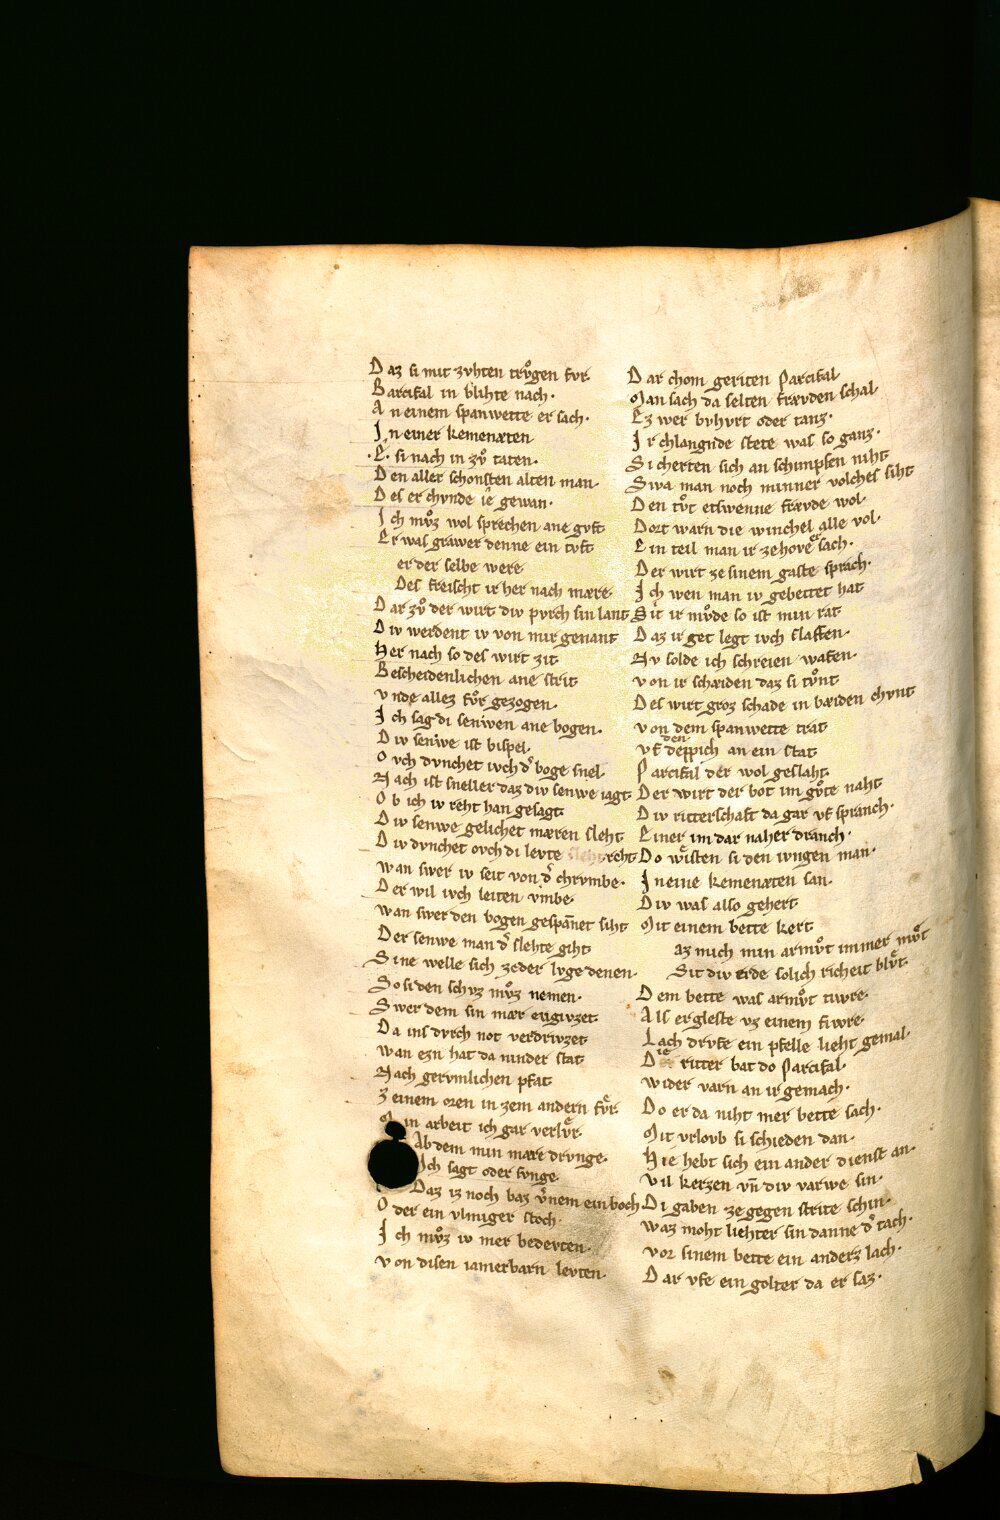 Daz si mit zvhten trvͦgen fvr
Barcifal in blihte nach·
An einem spanwette er sach·
In einer kemenaten
·E· si nach in zvͦ taten·
Den aller schonsten alten man·
Des er chvnde ie gewan·
Ich mvͦz wol sprechen ane gvft
Er was grawer denne ein tvft
er der selbe were
Des freischt ir her nach mære·
Dar zvͦ der wirt div pvrch sin lant
Div werdent iv von mir genant
Her nach so des wirt zit
Bescheidenlichen ane strit
vnde allez fvͦr gezogen·
Ich sag di senwen ane bogen·
Div senwe ist bispel·
Ovch dvnchet ivch dͤ boge snel·
Nach ist sneller daz div senwe iagt·
Ob ich iv reht han gesagt
Div senwe gelichet mæren sleht
Div dvnchet ovch di levte reht
wan swer iv seit von dͤ chrvmbe·
Der wil ivch leiten vmbe·
wan swer den bogen gespānet siht
Der senwe man dͤ slehte giht
Sine welle sich zeder byge denen·
So si den schvz mvͦz nemen·
Swer dem sin mær engivzet
Da ins dvrch not verdrivzet
wan ezn hat da ninder stat
Nach gervmlichen pfat
Zeinem oren in zem andern fvͤr·
Min arbeit ich gar verlvͤr·
Ab dem min mære drvnge·
Ich sagt oder svnge·
Daz iz noch baz vͤnem ein boch
Oder ein vlmiger stoch·
Ich mvͦz iv mer bedevten·
von disen iamerbarn levten·
Dar chom geriten Parcifal
Man sach da selten frævden schal
Ez wer bvhvrt oder tanz·
Ir chlangnde stete was so ganz·
Sicherten sich an schimpfen niht
Swa man noch minner volches siht
Den tvͦt etswenne frævde wol·
Dort warn die winchel alle vol·
Ein teil man ir ze hove sach·
Der wirt ze sinem gaste sprach·
Ich wen man iv gebettet hat
Sit ir mvͦde so ist min rat
Daz ir get legt ivch slaffen·
Nv solde ich schreien wafen·
von ir schæiden daz si tvͦnt
Des wirt groz schade in bæiden chvnt
von dem spanwette trat
vf den deppich an ein stat
Parcifal der wol geslaht·
Der wirt der bot im gvͦte naht
Div ritterschaft da gar vf spranch·
Einer im dar naher dranch·
Do wisten si den ivngen man·
In eine kemenæten san·
Div was also gehert
Mit einem bette kert
az mich min armvͦt immer mvͤt
Sit div erde solich richeit blvͤt·
Dem bette was armvͦt tivre·
Als ergleste vz einem fivre·
Lach drvfe ein pfelle lieht gemal·
Die ritter bat do Parcifal·
wider varn an ir gemach·
Do er da niht mer bette sach·
Mit vrlovb si schieden dan·
Hie hebt sich ein ander dienst an·
vil kerzen vn̄ div varwe sin·
Di gaben ze gegen strite schin·
waz moht liehter sin danne dͤ tach·
vor sinem bette ein anderz lach·
Dar vfe ein golter da er saz·